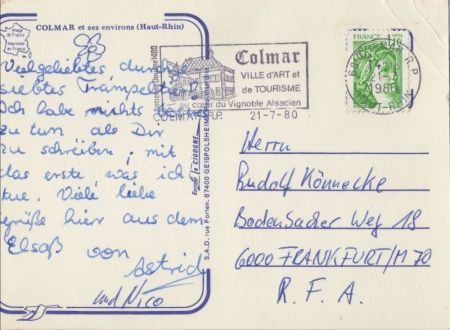 COLMAR et ses environs (Haut-Rhin)
Vielgeliebtes
Trampeltier!
Ich habe nichts
zu tun als Dir
zu schreiben; mit
das erste was ich
tue. Viele liebe
grüße hier aus dem
Elsaß von
Astrid
und Nico
LA CIGOGNE
S.A.D. rue Forlen. 67400 GEISPOLSHEIM
Colmar
VILLE d'ART et
de TOURISME
au cœur du Vignoble Alsacien
COLMAR R.P. 21-7-80
FRANCE
1980
Herrn
Rudolf Könnecke
Bodensacher Weg 18
6000 FRANKFURT/M 70
R. F. A.